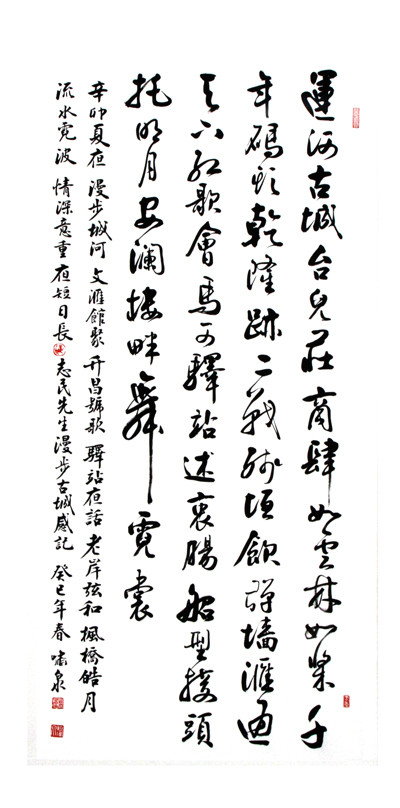 運河古城台兒莊商肆如雲林如槳千
年碼頭乾隆跡二戰殘垣飲彈墻滙通
天下紅歌會馬可驛站述衷腸船型樓頭
托明月安瀾樓畔舞霓裳
辛卯夏夜 漫步城河 文滙館聚 升昌號歌 驛站夜話 老岸弦和 楓橋皓月
流水霓波 情深意重 夜短日長 志民先生漫步古城感記 癸巳年春 嘯泉